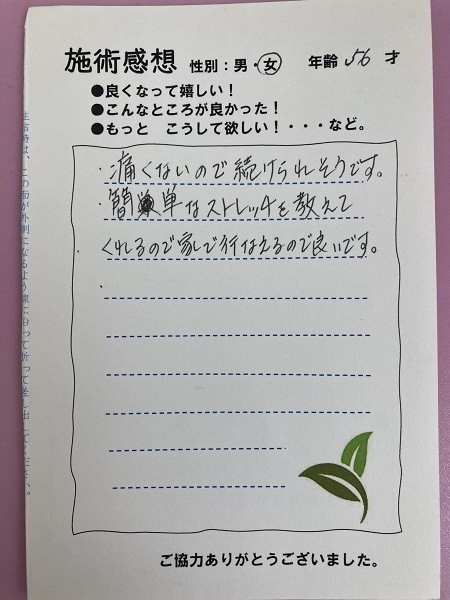 施術感想 性別：男・女 年齢 56 才
●良くなって嬉しい！
●こんなところが良かった！
●もっと こうして欲しい！・・・など。
・痛くないので続けられそうです。
・簡単なストレッチを教えて
くれるので家で行なえるので良いです。
ご協力ありがとうございました。
生活時は、この面が外側になるよう線に沿って折って差し出してください。